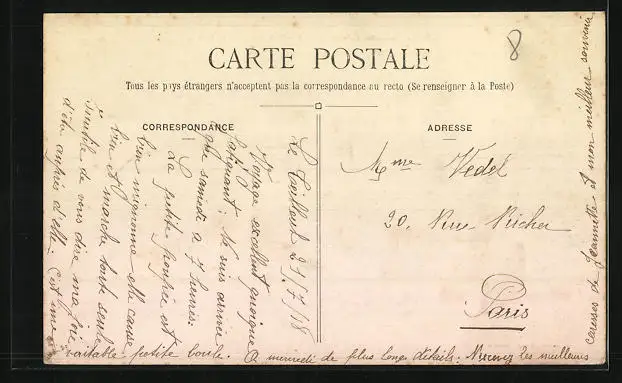 8
CARTE POSTALE
Tous les pays étrangers n'acceptent pas la correspondance au recto (Se renseigner à la Poste)
CORRESPONDANCE
ADRESSE
Mme Vedel
20, Rue Richer
Paris
Le 21/7/18
Voyage excellent quoique
fatiguant; je suis arrivée
samedi a 7 heures.
La petite poupée est
bien mignonne elle cause
bien et marche toute seule
Inutile de vous dire ma joie
d'être auprès d'elle. C'est une
véritable petite boule. A mercredi de plus longs détails. Recevez les meilleurs
caresses de Jeannette et mon meilleur souvenir